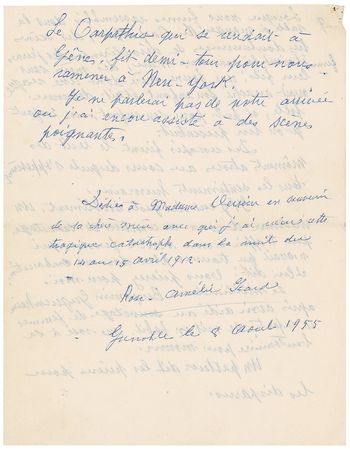 Le Carpathia qui se rendait à
Gênes, fit demi-tour pour nous
ramener à New-York.
Je ne parlerai pas de notre arrivée
où j'ai encore assisté à des scènes
poignantes.
Dédiée à Madame en souvenir
de sa chère avec qui j'ai vécu cette
tragique catastrophe, dans la nuit du
14 au 15 avril 1912.
Rose-Amélie Icard
Grenoble le 8 Août 1955